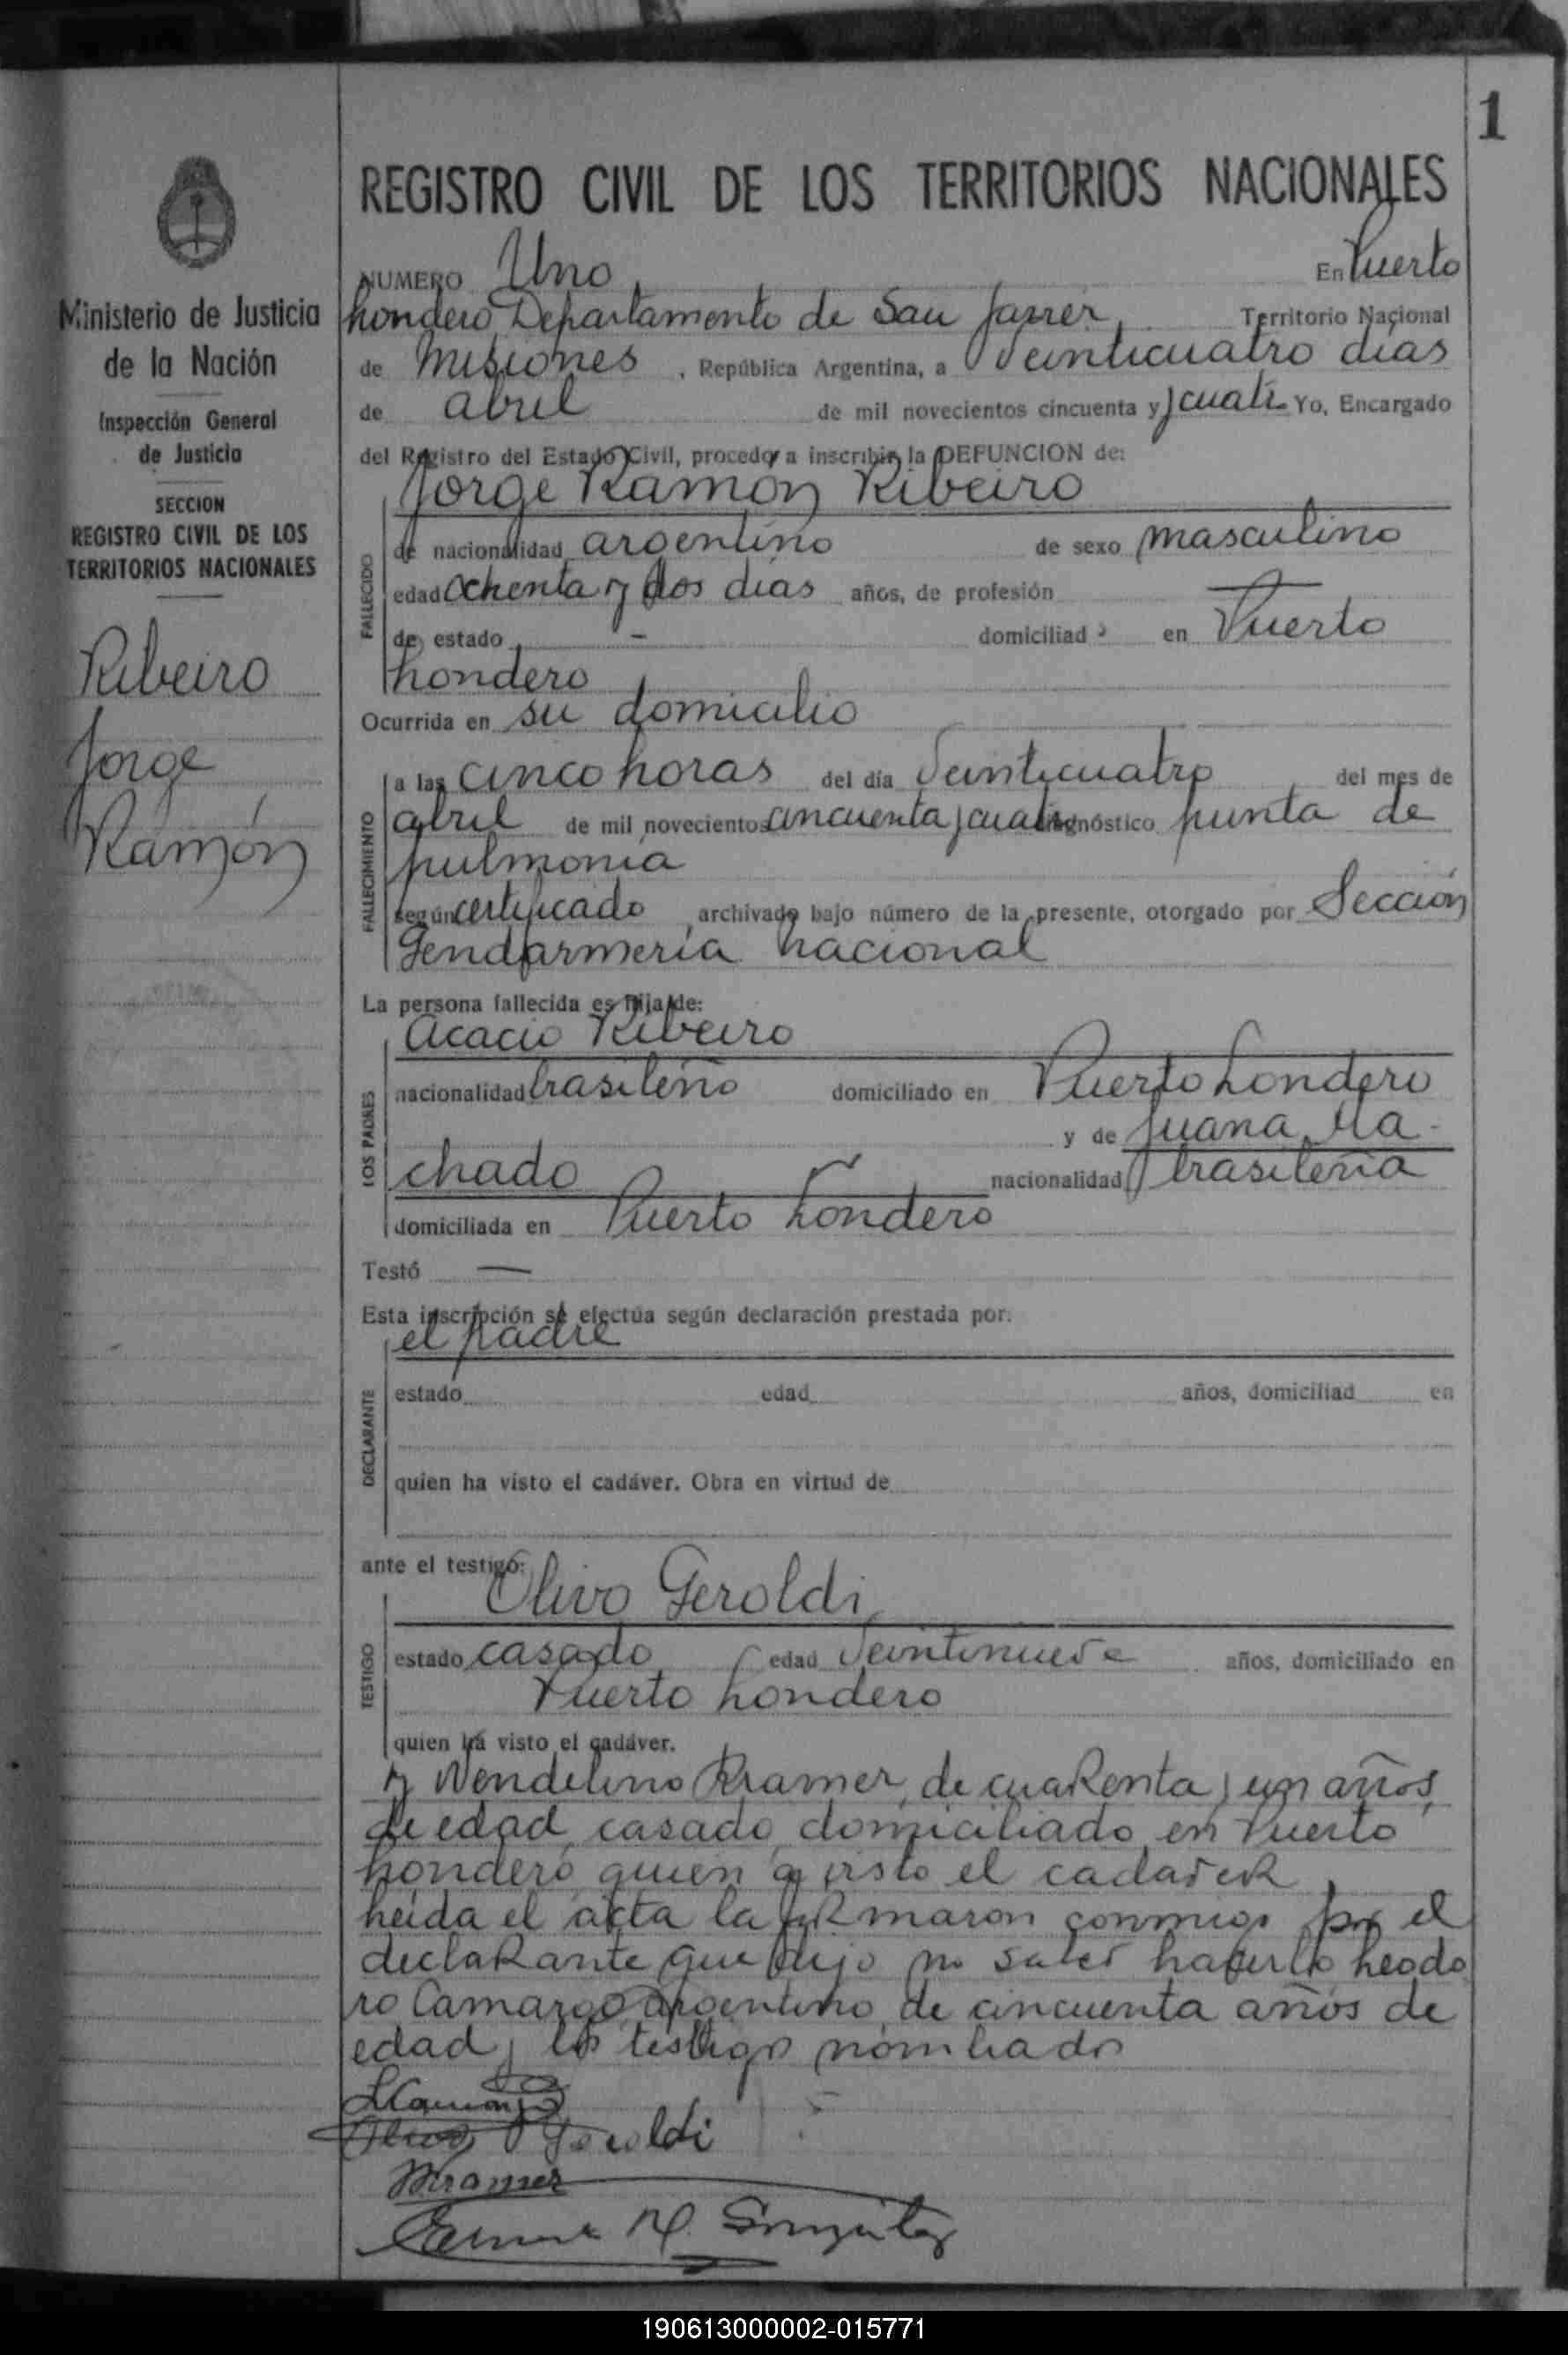 1
Ministerio de Justicia
de la Nación
Inspección General
de Justicia
SECCION
REGISTRO CIVIL DE LOS
TERRITORIOS NACIONALES
Ribeiro
Jorge
Ramón
REGISTRO CIVIL DE LOS TERRITORIOS NACIONALES
NUMERO Uno En Puerto
Londero, Departamento de San Javier, Territorio Nacional
de Misiones , República Argentina, a Veinticuatro días
de abril de mil novecientos cincuenta y cuatro Yo, Encargado
del Registro del Estado Civil, procedo a inscribir la DEFUNCION de:
Jorge Ramón Ribeiro
FALLECIDO
de nacionalidad argentino de sexo masculino
edad ochenta y dos días años, de profesión —
de estado - domiciliado en Puerto
Londero
Ocurrida en su domicilio
FALLECIMIENTO
a las cinco horas del día Veinticuatro del mes de
abril de mil novecientos cincuenta y cuatro diagnóstico punta de
pulmonía
según certificado archivado bajo número de la presente, otorgado por Sección
Gendarmería Nacional
La persona fallecida es hija de:
LOS PADRES
Acacio Ribeiro
nacionalidad brasileño domiciliado en Puerto Londero
y de Juana Ma-
chado nacionalidad brasileña
domiciliada en Puerto Londero
Testó —
Esta inscripción se efectúa según declaración prestada por:
el padre
DECLARANTE
estado edad años, domiciliad en
quien ha visto el cadáver. Obra en virtud de
ante el testigo:
Olivo Geroldi
TESTIGO
estado casado edad Veintinueve años, domiciliado en
Puerto Londero
quien ha visto el cadáver.
y Wendelino Kramer, de cuarenta y un años
de edad, casado, domiciliado en Puerto
Londero, quien a visto el cadaver
Leída el acta la firmaron conmigo por el
declarante que dijo no saber haserlo Leodo
ro Camargo, argentino, de cincuenta años de
edad y los testigos nombrados
LCamargo
Olivo Geroldi
Kramer
González
190613000002-015771